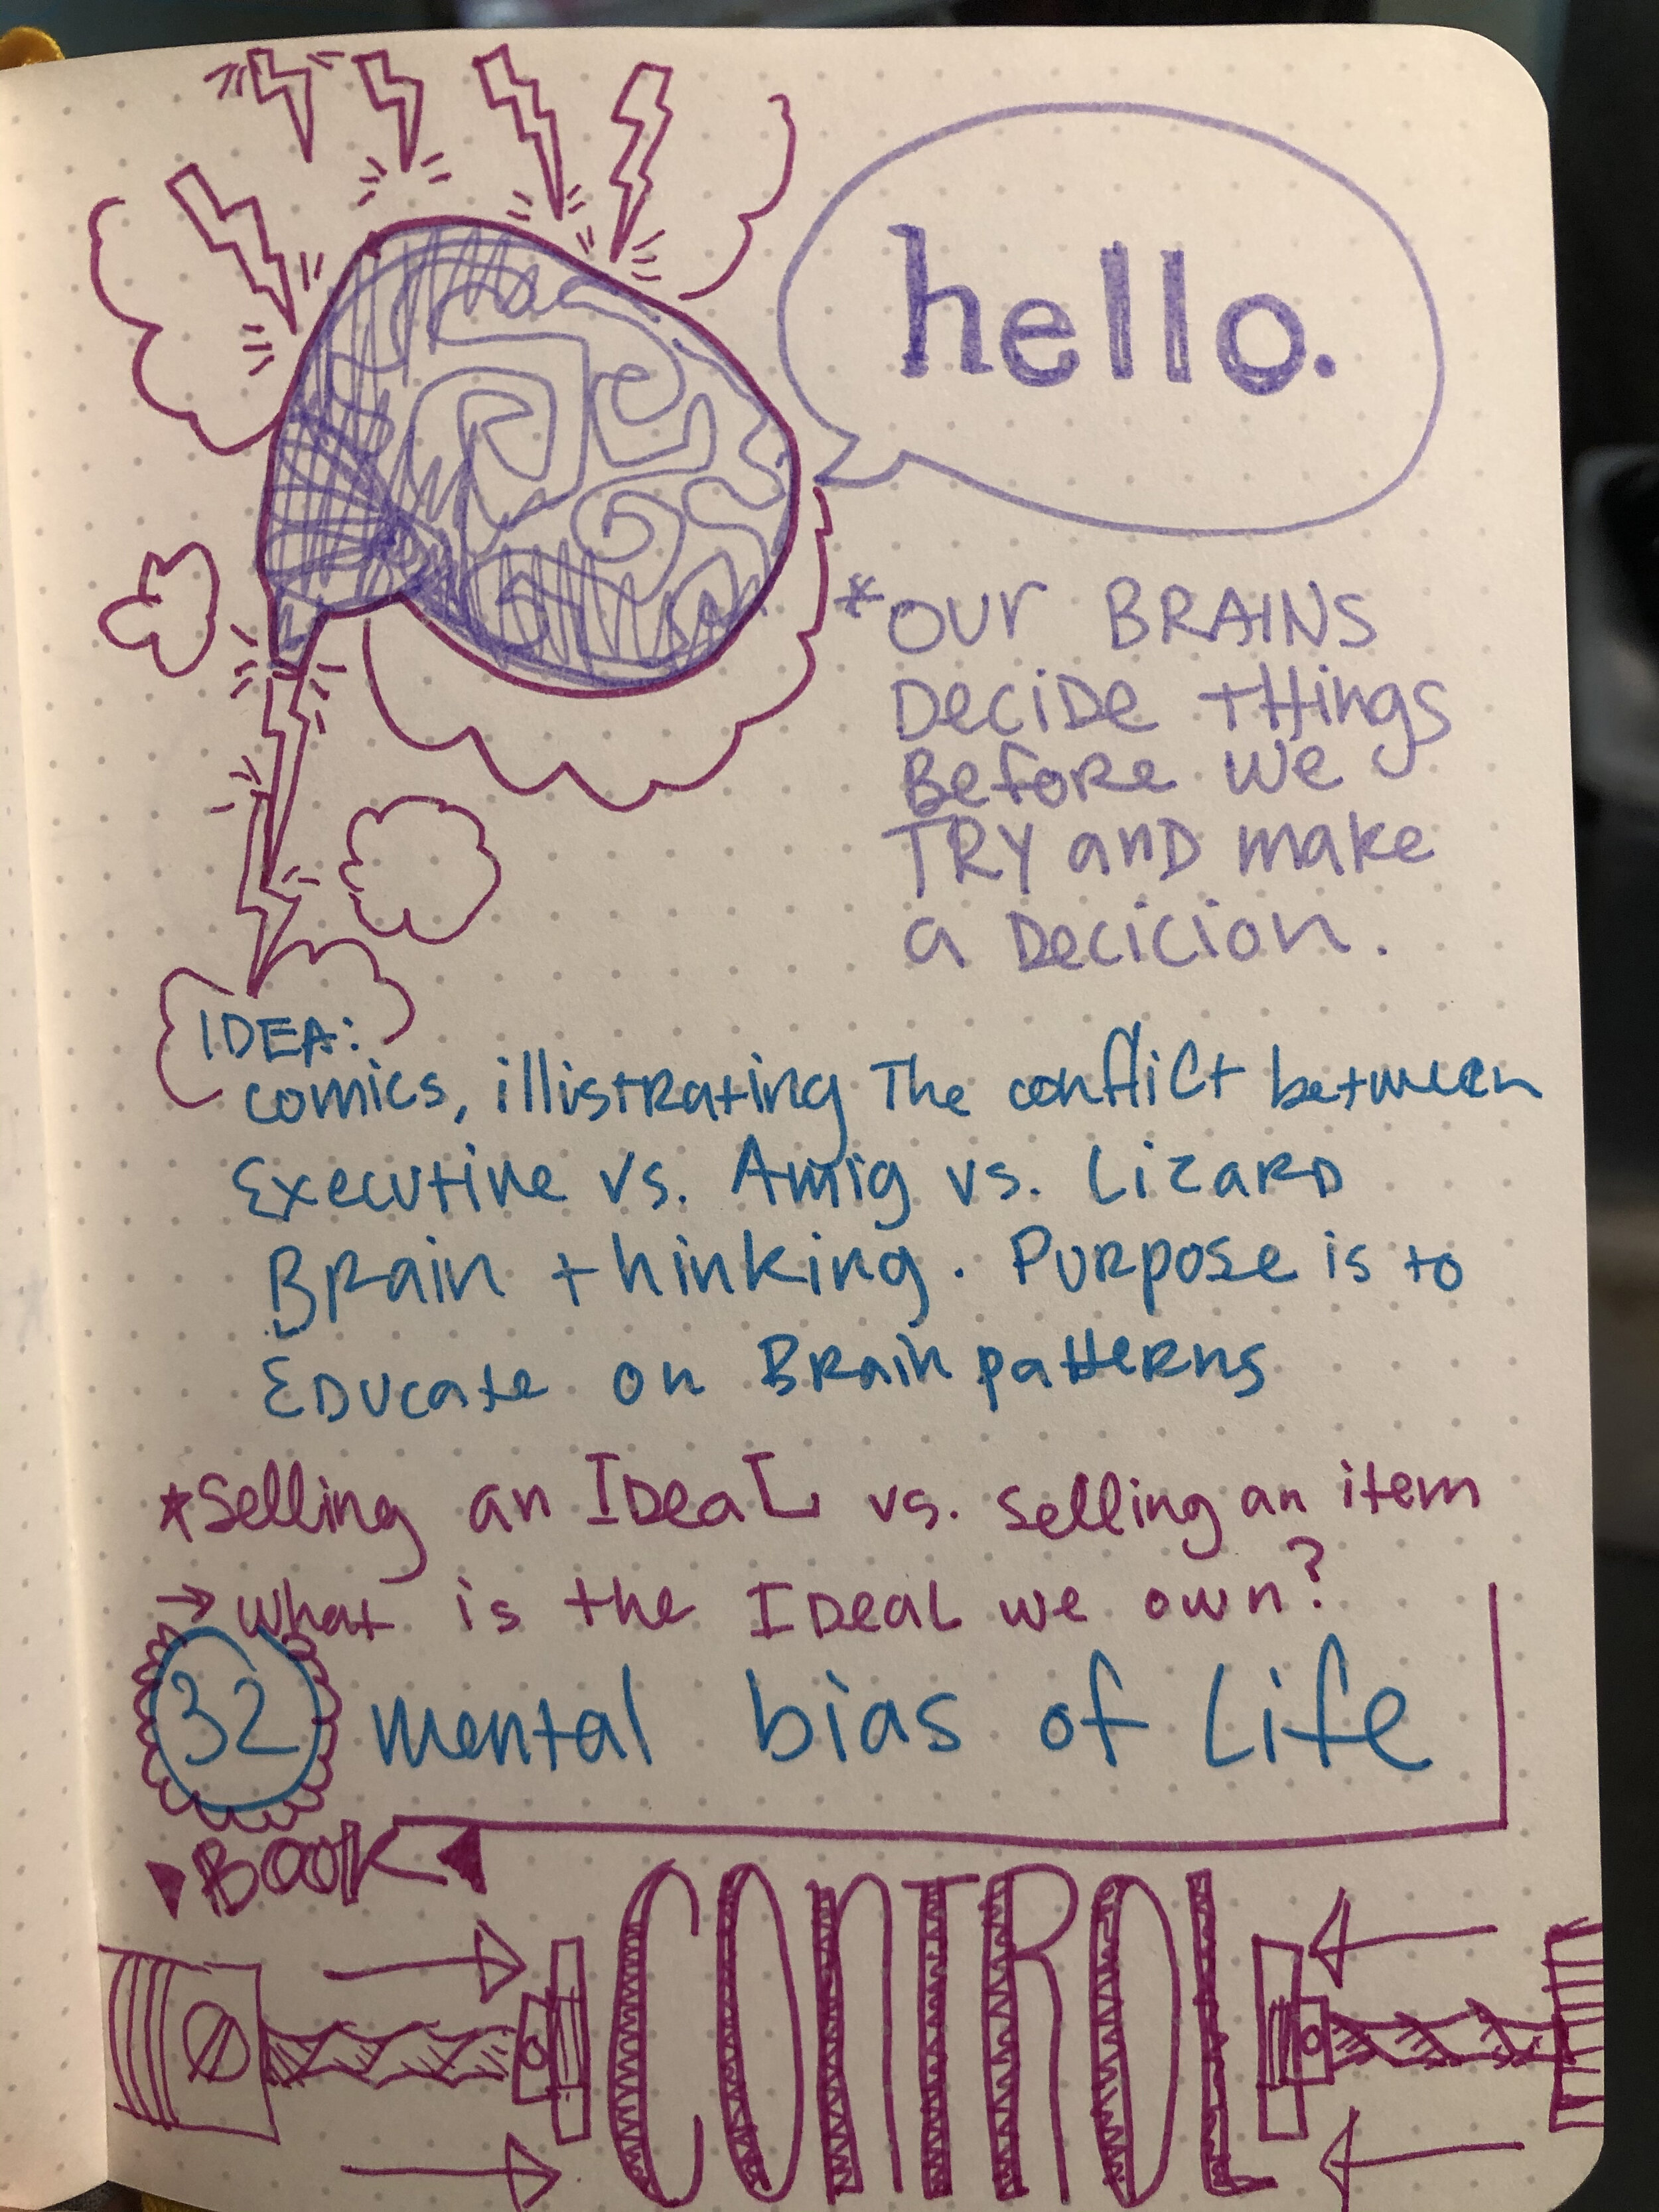 hello.
*OUR BRAINS
DECIDE tHings
BEFORE We
TRY anD make
a Decicion.
IDEA:
comics, illistRating The conflict between
Executive vs. Amig vs. LizaRD
BRain thinking. PuRpose is to
EDucate on BRain patteRns
*Selling an IDeaL vs. selling an item
→ what is the IDeaL we own?
32 mental bias of Life
BOOK
CONTROL